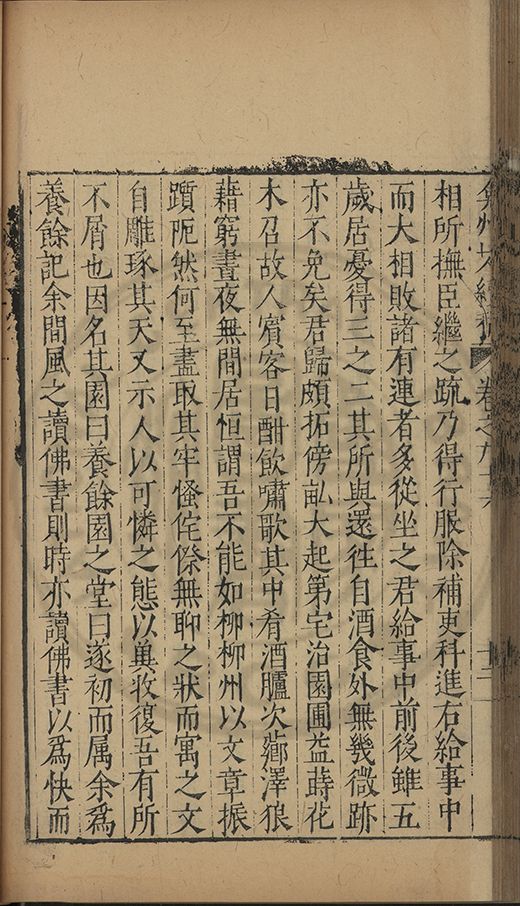 弇州山人續稿 卷之九十六 十二
相所撫臣繼之疏乃得行服除補吏科進右給事中
而大相敗諸有連者多從坐之君給事中前後雖五
歲居憂得三之二其所與還往自酒食外無幾微跡
亦不免矣君歸頗拓傍畝大起第宅治園圃益蒔花
木召故人賓客日酣飲嘯歌其中肴酒臚次薌澤狼
藉窮晝夜無間居恒謂吾不能如柳柳州以文章振
躓阨然何至盡取其牢慅侘傺無聊之狀而寓之文
自雕琢其天又示人以可憐之態以兾收復吾有所
不屑也因名其園曰養餘園之堂曰遂初而属余爲
養餘記余間風之讀佛書則時亦讀佛書以爲快而